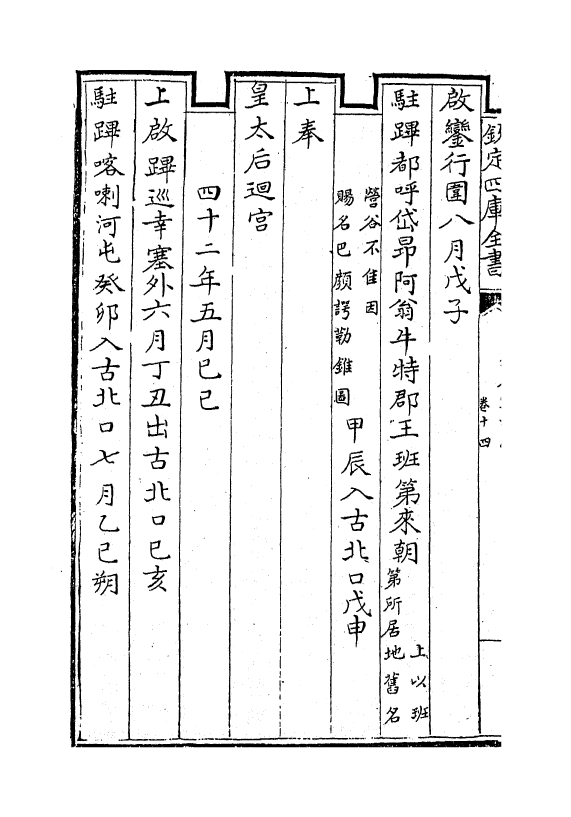 欽定四庫全書
卷十四
啟鑾行圍八月戊子
駐蹕都呼岱昂阿翁牛特郡王班第來朝上以班第所居地舊名
營谷不佳因賜名巴顏諤勒錐圖甲辰入古北口戊申
上奉
皇太后迴宫
四十二年五月己巳
上啟蹕巡幸塞外六月丁丑出古北口己亥
駐蹕喀喇河屯癸卯入古北口七月乙巳朔